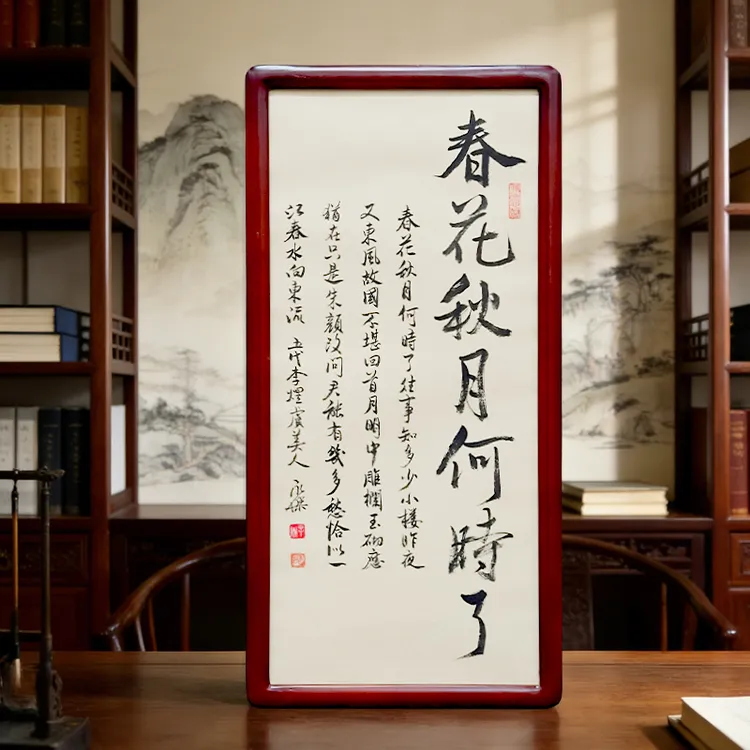 春花秋月何時了
春花秋月何時了往事知多少小樓昨夜
又東風故國不堪回首月明中雕欄玉砌應
猶在只是朱顏改問君能有幾多愁恰似一
江春水向東流 五代李煜虞美人